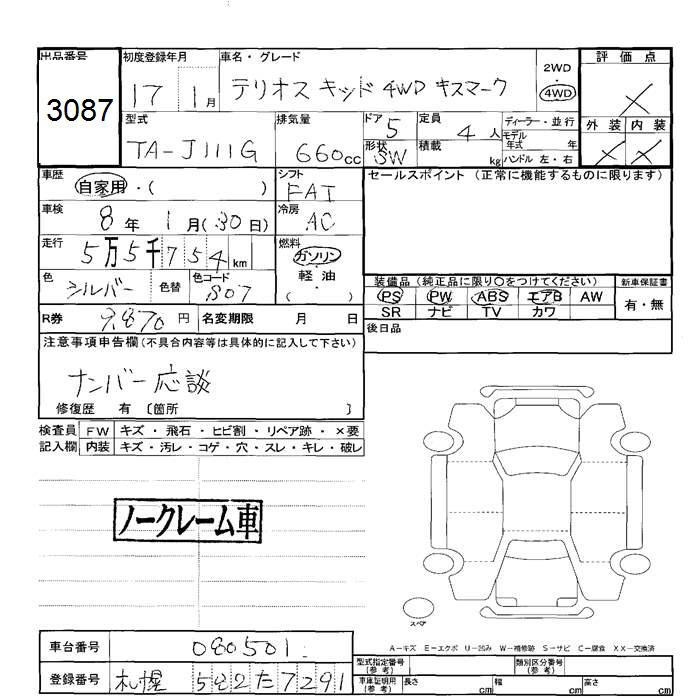 出品番号 初度登録年月 車名・グレード 2WD 評価点
3087 17 1月 テリオス キッド 4WD キスマーク 4WD ×
型式 排気量 ドア 定員 ディーラー・並行 外装 内装
TA-J111G 660cc 5 4人 モデル年式 年 × ×
形状 SW 積載 kg ハンドル 左・右
車歴 自家用・( ) シフト FAT セールスポイント (正常に機能するものに限ります)
車検 8年 1月(30日) 冷房 AC
走行 5万5千754km 燃料 ガソリン・軽油 ( )
色 シルバー 色替 色コード S07
装備品 (純正品に限り○をつけてください) 新車保証書
PS PW ABS エアB AW 有・無
SR ナビ TV カワ
R券 9,870円 名変期限 月 日 後日品
注意事項申告欄(不具合内容等は具体的に記入して下さい)
ナンバー応談
修復歴 有 〔箇所 〕
検査員 FW キズ・飛石・ヒビ割・リペア跡・×要
記入欄 内装 キズ・汚レ・コゲ・穴・スレ・キレ・破レ
ノークレーム車
スペア
A-キズ E-エクボ U-凹み W-補修跡 S-サビ C-腐食 XX-交換済
車台番号 080501
型式指定番号 (参考) 類別区分番号 (参考)
登録番号 札幌 582た7291
車庫証明用 (参考) 長さ cm 幅 cm 高さ cm